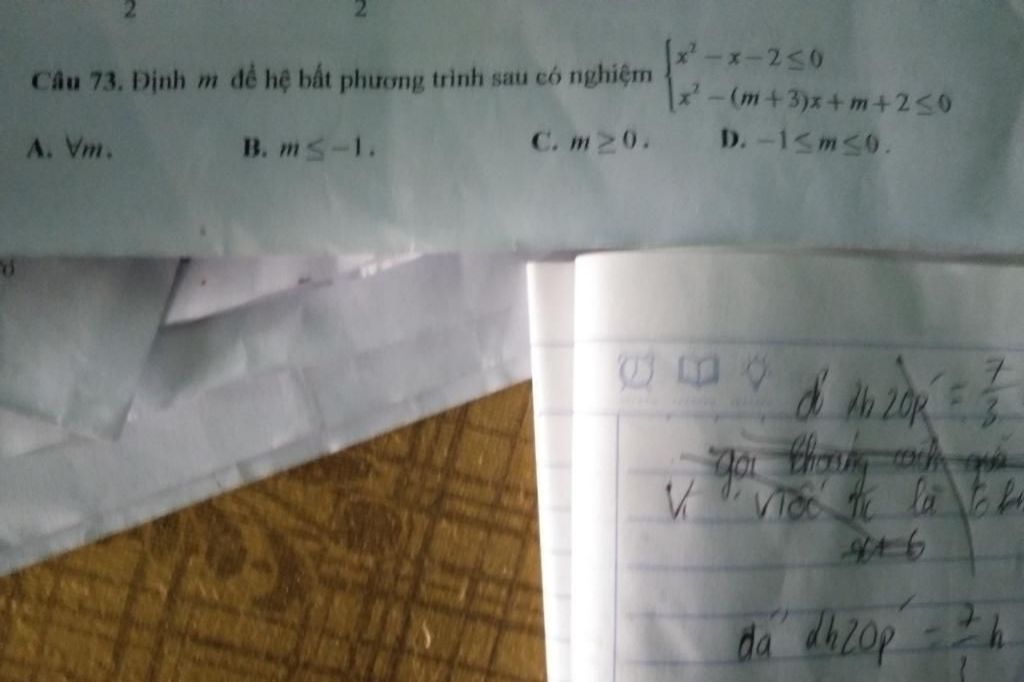 2 2
Câu 73. Định m để hệ bất phương trình sau có nghiệm { x² - x - 2 ≤ 0
x² - (m + 3)x + m + 2 ≤ 0
A. ∀m. B. m ≤ -1. C. m ≥ 0. D. -1 ≤ m ≤ 0.
dh 20p' = 7/3
gọi khoảng cách
Vì việc là
x + 6
đã dh20p' = 7 h